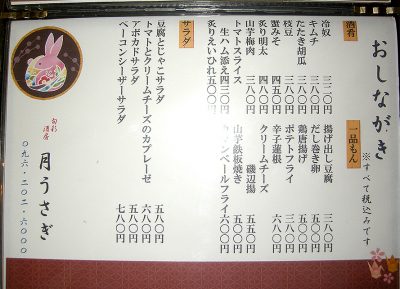 おしながき
※すべて税込みです
酒肴
冷奴 三二〇円
キムチ 三八〇円
たたき胡瓜 三八〇円
枝豆 三八〇円
蟹みそ 四五〇円
炙り明太 四八〇円
山芋梅肉 三八〇円
トマトスライス 三八〇円
生ハム添え 四三〇円
炙りえいひれ 五〇〇円
一品もん
揚げ出し豆腐 三八〇円
だし巻き卵 五〇〇円
鶏唐揚げ 五五〇円
ポテトフライ 三八〇円
辛子蓮根 六八〇円
クリームチーズ
磯辺揚げ 五五〇円
山芋鉄板焼き 五五〇円
カマンベールフライ 六〇〇円
サラダ
豆腐とじゃこサラダ 五八〇円
トマトとクリームチーズのカプレーゼ 六八〇円
アボカドサラダ 五八〇円
ベーコンシーザーサラダ 七八〇円
旬彩
酒房
月うさぎ
〇九六-二〇二-六〇〇〇